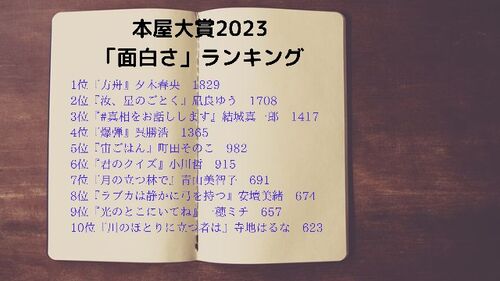 本屋大賞2023
「面白さ」ランキング
1位『方舟』夕木春央　1829
2位『汝、星のごとく』凪良ゆう　1708
3位『#真相をお話しします』結城真一郎　1417
4位『爆弾』呉勝浩　1365
5位『宙ごはん』町田そのこ　982
6位『君のクイズ』小川哲　915
7位『月の立つ林で』青山美智子　691
8位『ラブカは静かに弓を持つ』安壇美緒　674
9位『光のとこにいてね』一穂ミチ　657
10位『川のほとりに立つ者は』寺地はるな　623